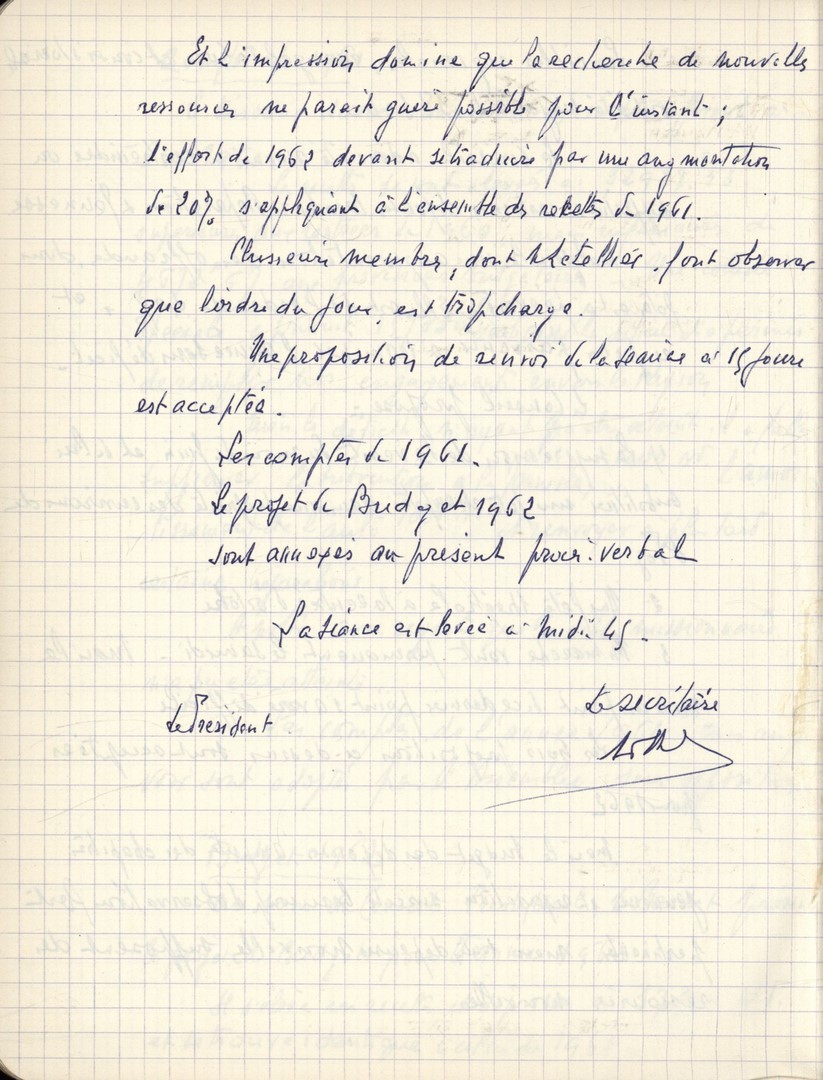 Et l'impression domine que la recherche de nouvelles
ressources ne parait guère possible pour l'instant ;
l'effort de 1962 devant se traduire par une augmentation
de 20% s'appliquant à l'ensemble des recettes de 1961.
Plusieurs membres, dont font observer
que l'ordre du jour, est trop chargé.
Une proposition de renvoi de la séance à 15 jours
est acceptée.
Les comptes de 1961.
Le projet de Budget 1962
sont annexés au présent procès-verbal
La séance est levée à midi 45.
Le Secrétaire
Le Président.